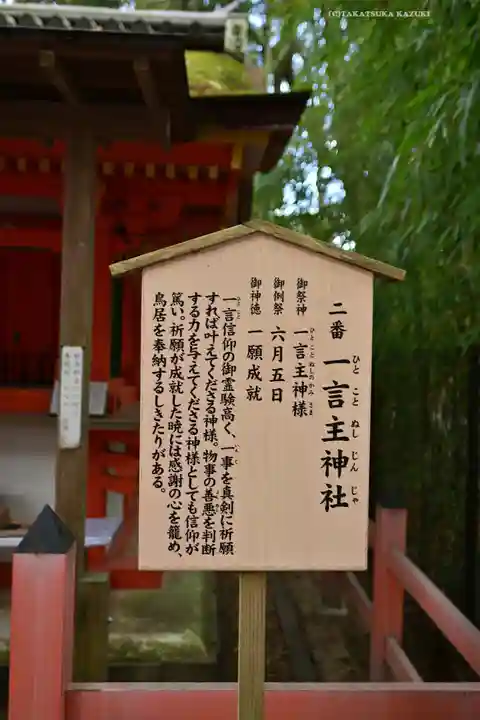 (C)TAKATSUKA KAZUKI
二番 一言主神社
ひと こと ぬし じん じゃ
御祭神 一言主神様
ひと こと ぬしの かみ さま
御例祭 六月五日
御神徳 一願成就
一言信仰の御霊験高く、一事を真剣に祈願
すれば叶えてくださる神様。物事の善悪を判断
する力を与えてくださる神様としても信仰が
篤い。祈願が成就した暁には感謝の心を籠め、
鳥居を奉納するしきたりがある。